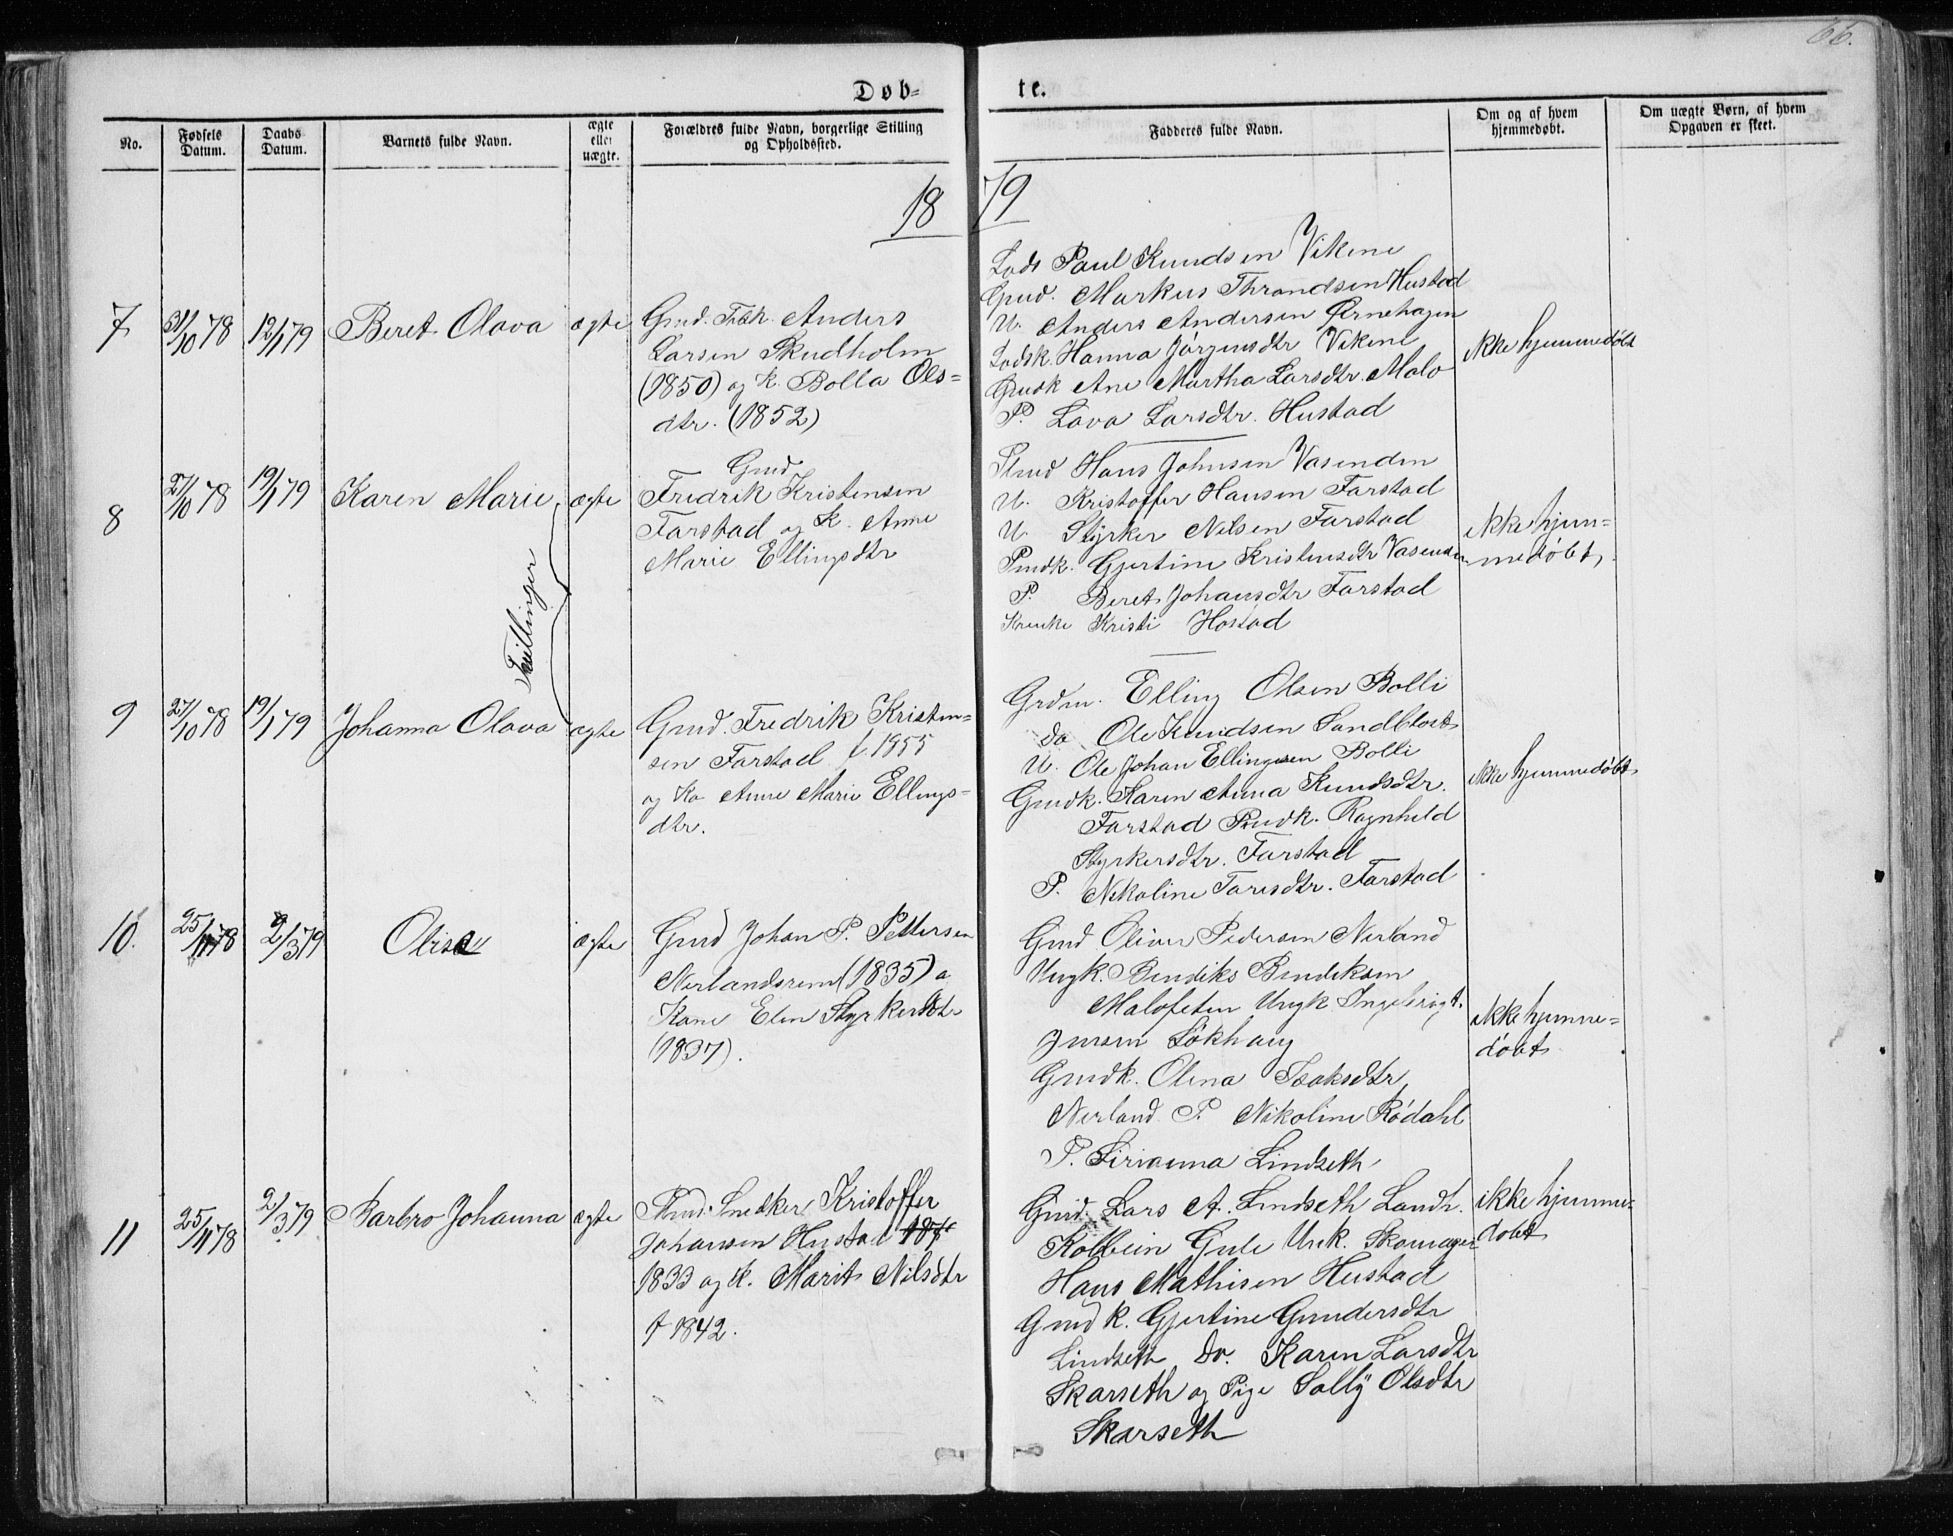 66.
Døb-
te.
No.
Fødsels
Datum.
Daabs
Datum.
Barnets fulde Navn.
ægte
eller
uægte.
Forældres fulde Navn, borgerlige Stilling
og Opholdssted.
Faddernes fulde Navn.
Om og af hvem
hjemmedøbt.
Om uægte Børn, af hvem
Opgaven er skeet.
18 79
7
31/10 78
12/1 79
Beret Olava
ægte
Gmd. Fisk. Anders
Larsen Skudholm
(1850) og K. Bolla Ols=
dtr. (1852)
Lods Paul Knudsen Vikene
Gmd. Markus Thrandsen Hustad
U. Anders Andersen Ørnehagen
Lodsk. Hanna Jørgensdtr Vikene
Gmdk Ane Martha Larsdtr. Malo
P. Lava Larsdtr. Hustad
ikke hjemmedøbt
8
27/10 78
19/1 79
Karen Marie
ægte
Gmd
Fredrik Kristensen
Farstad og K. Anne
Marie Ellingsdtr
Hans Johnsen Vasenden
U. Kristoffer Hansen Farstad
U. Styrker Nilsen Farstad
Pmdk. Gjertine Kristensdtr Vasenden
P. Beret Johansdtr Farstad
Kristi Hostad
ikke hjem=
medøbt
Tvillinger
9
27/10 78
19/1 79
Johanna Olava
ægte
Gmd. Fredrik Kristen=
sen Farstad f. 1855
og Ko Anne Marie Ellings=
dtr.
Grdm. Elling Olsen Bolli
do Ole Knudsen Sandblost
U. Ole Johan Ellingsen Bolli
Gmdk. Karen Anna Knudsdtr.
Farstad Pmdk. Ragnhild
Styrkersdtr. Farstad
P. Nikoline Taresdtr. Farstad
ikke hjemmedøbt
10.
25/11 78
2/3 79
Olise
ægte
Gmd Johan P. Pettersen
Nerlandsrem (1835) o
Kone Elen Styrkersdtr
(1837).
Gmd Oliver Pedersen Nerland
Ungk. Bendiks Bendiksen
Malofeten Ungk Ingebrigt
Jensen Løkhaug
Gmdk. Olena Isaksdtr
Nerland P. Nikoline Rødahl
P. Sirianna Lindseth
ikke hjemme=
døbt
11
25/11 78
2/3 79
Barbro Johanna
ægte
Snedker Kristoffer
Johansen Hustad
1833 og K. Marit Nilsdtr
f 1842.
Gmd. Lars A. Lindseth Landh.
Kolbein Gule Unk. Skomager
Hans Mathisen Hustad
Gmd k. Gjertine Gundersdtr
Lindseth do. Karen Larsdtr
Skarseth og Pige Sally Olsdtr
Skarseth
ikke hjemme=
døbt